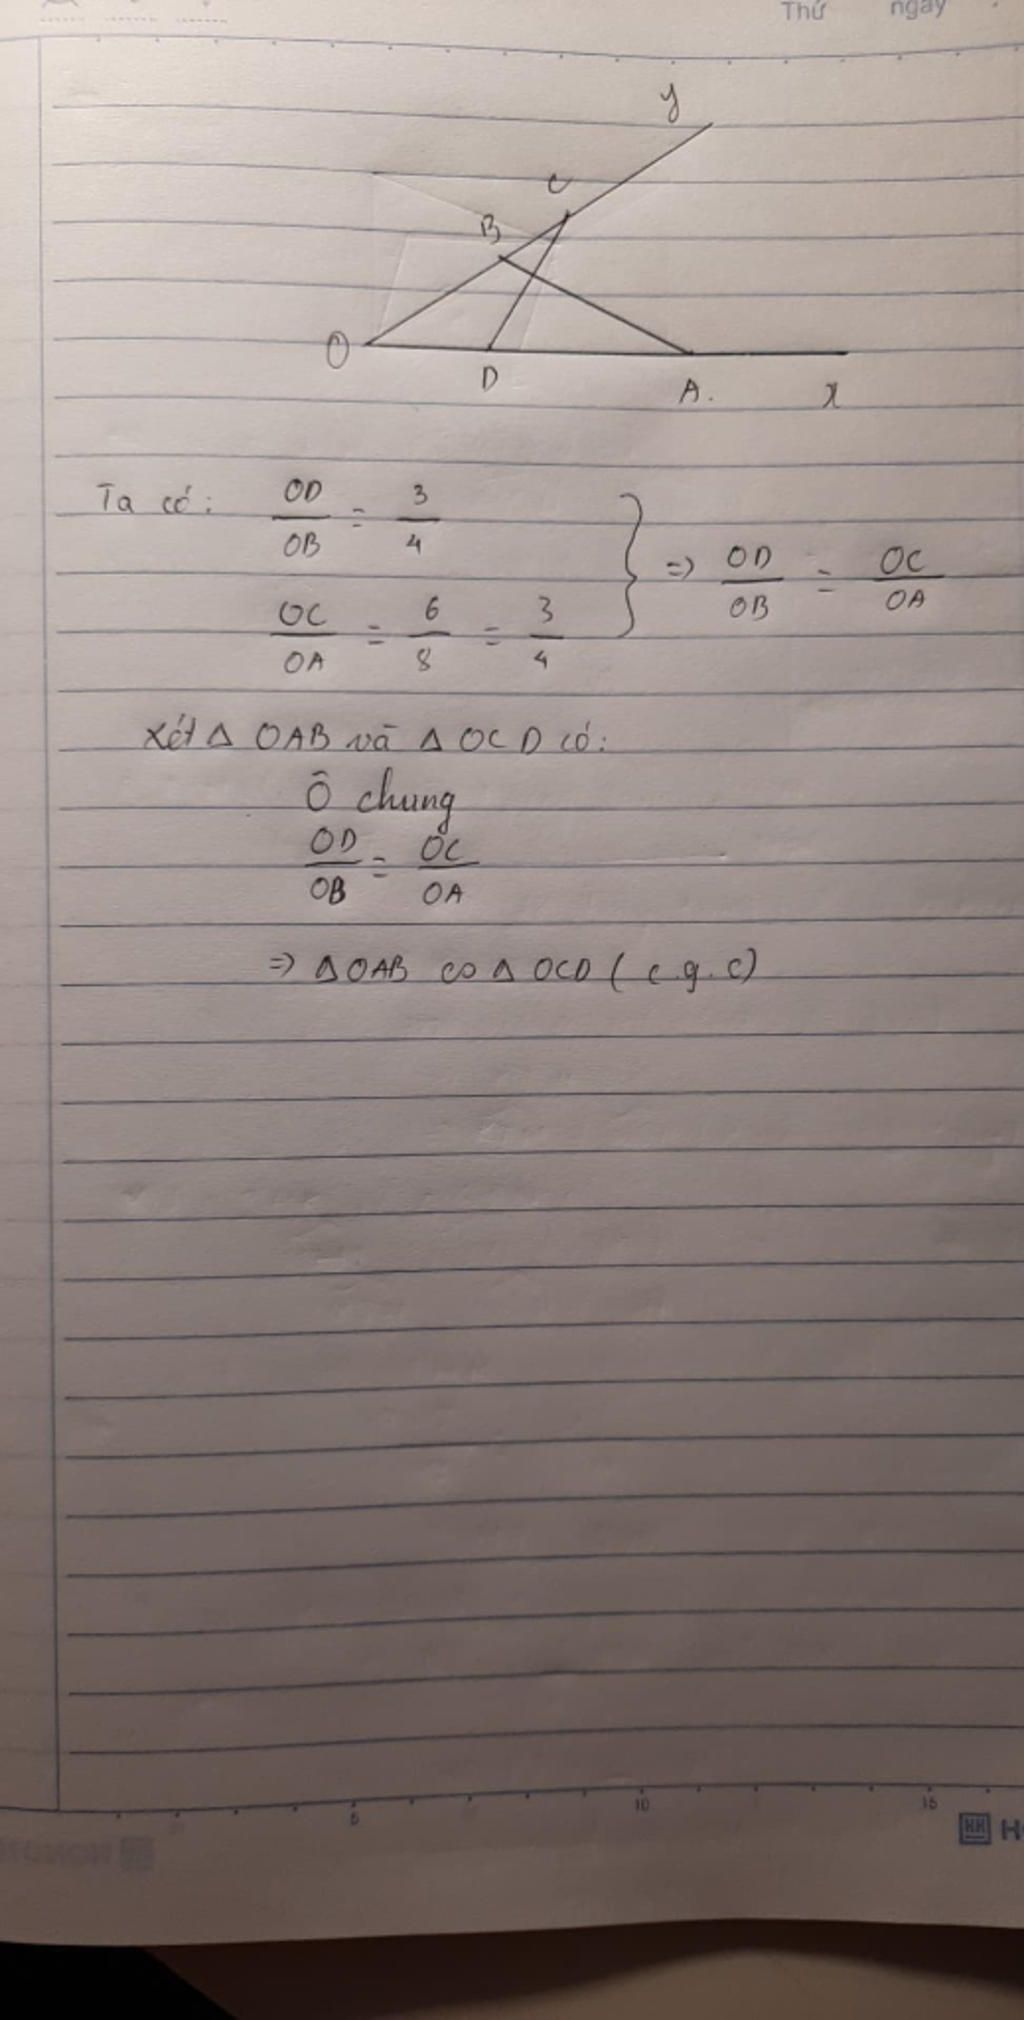 Thứ ngày
y
C
B
O
D
A.
x
Ta có: OD/OB = 3/4
OC/OA = 6/8 = 3/4 } => OD/OB = OC/OA
Xét Δ OAB và Δ OCD có:
Ô chung
OD/OB = OC/OA
=> ΔOAB ∽ Δ OCD ( c.g.c)
5 10 15